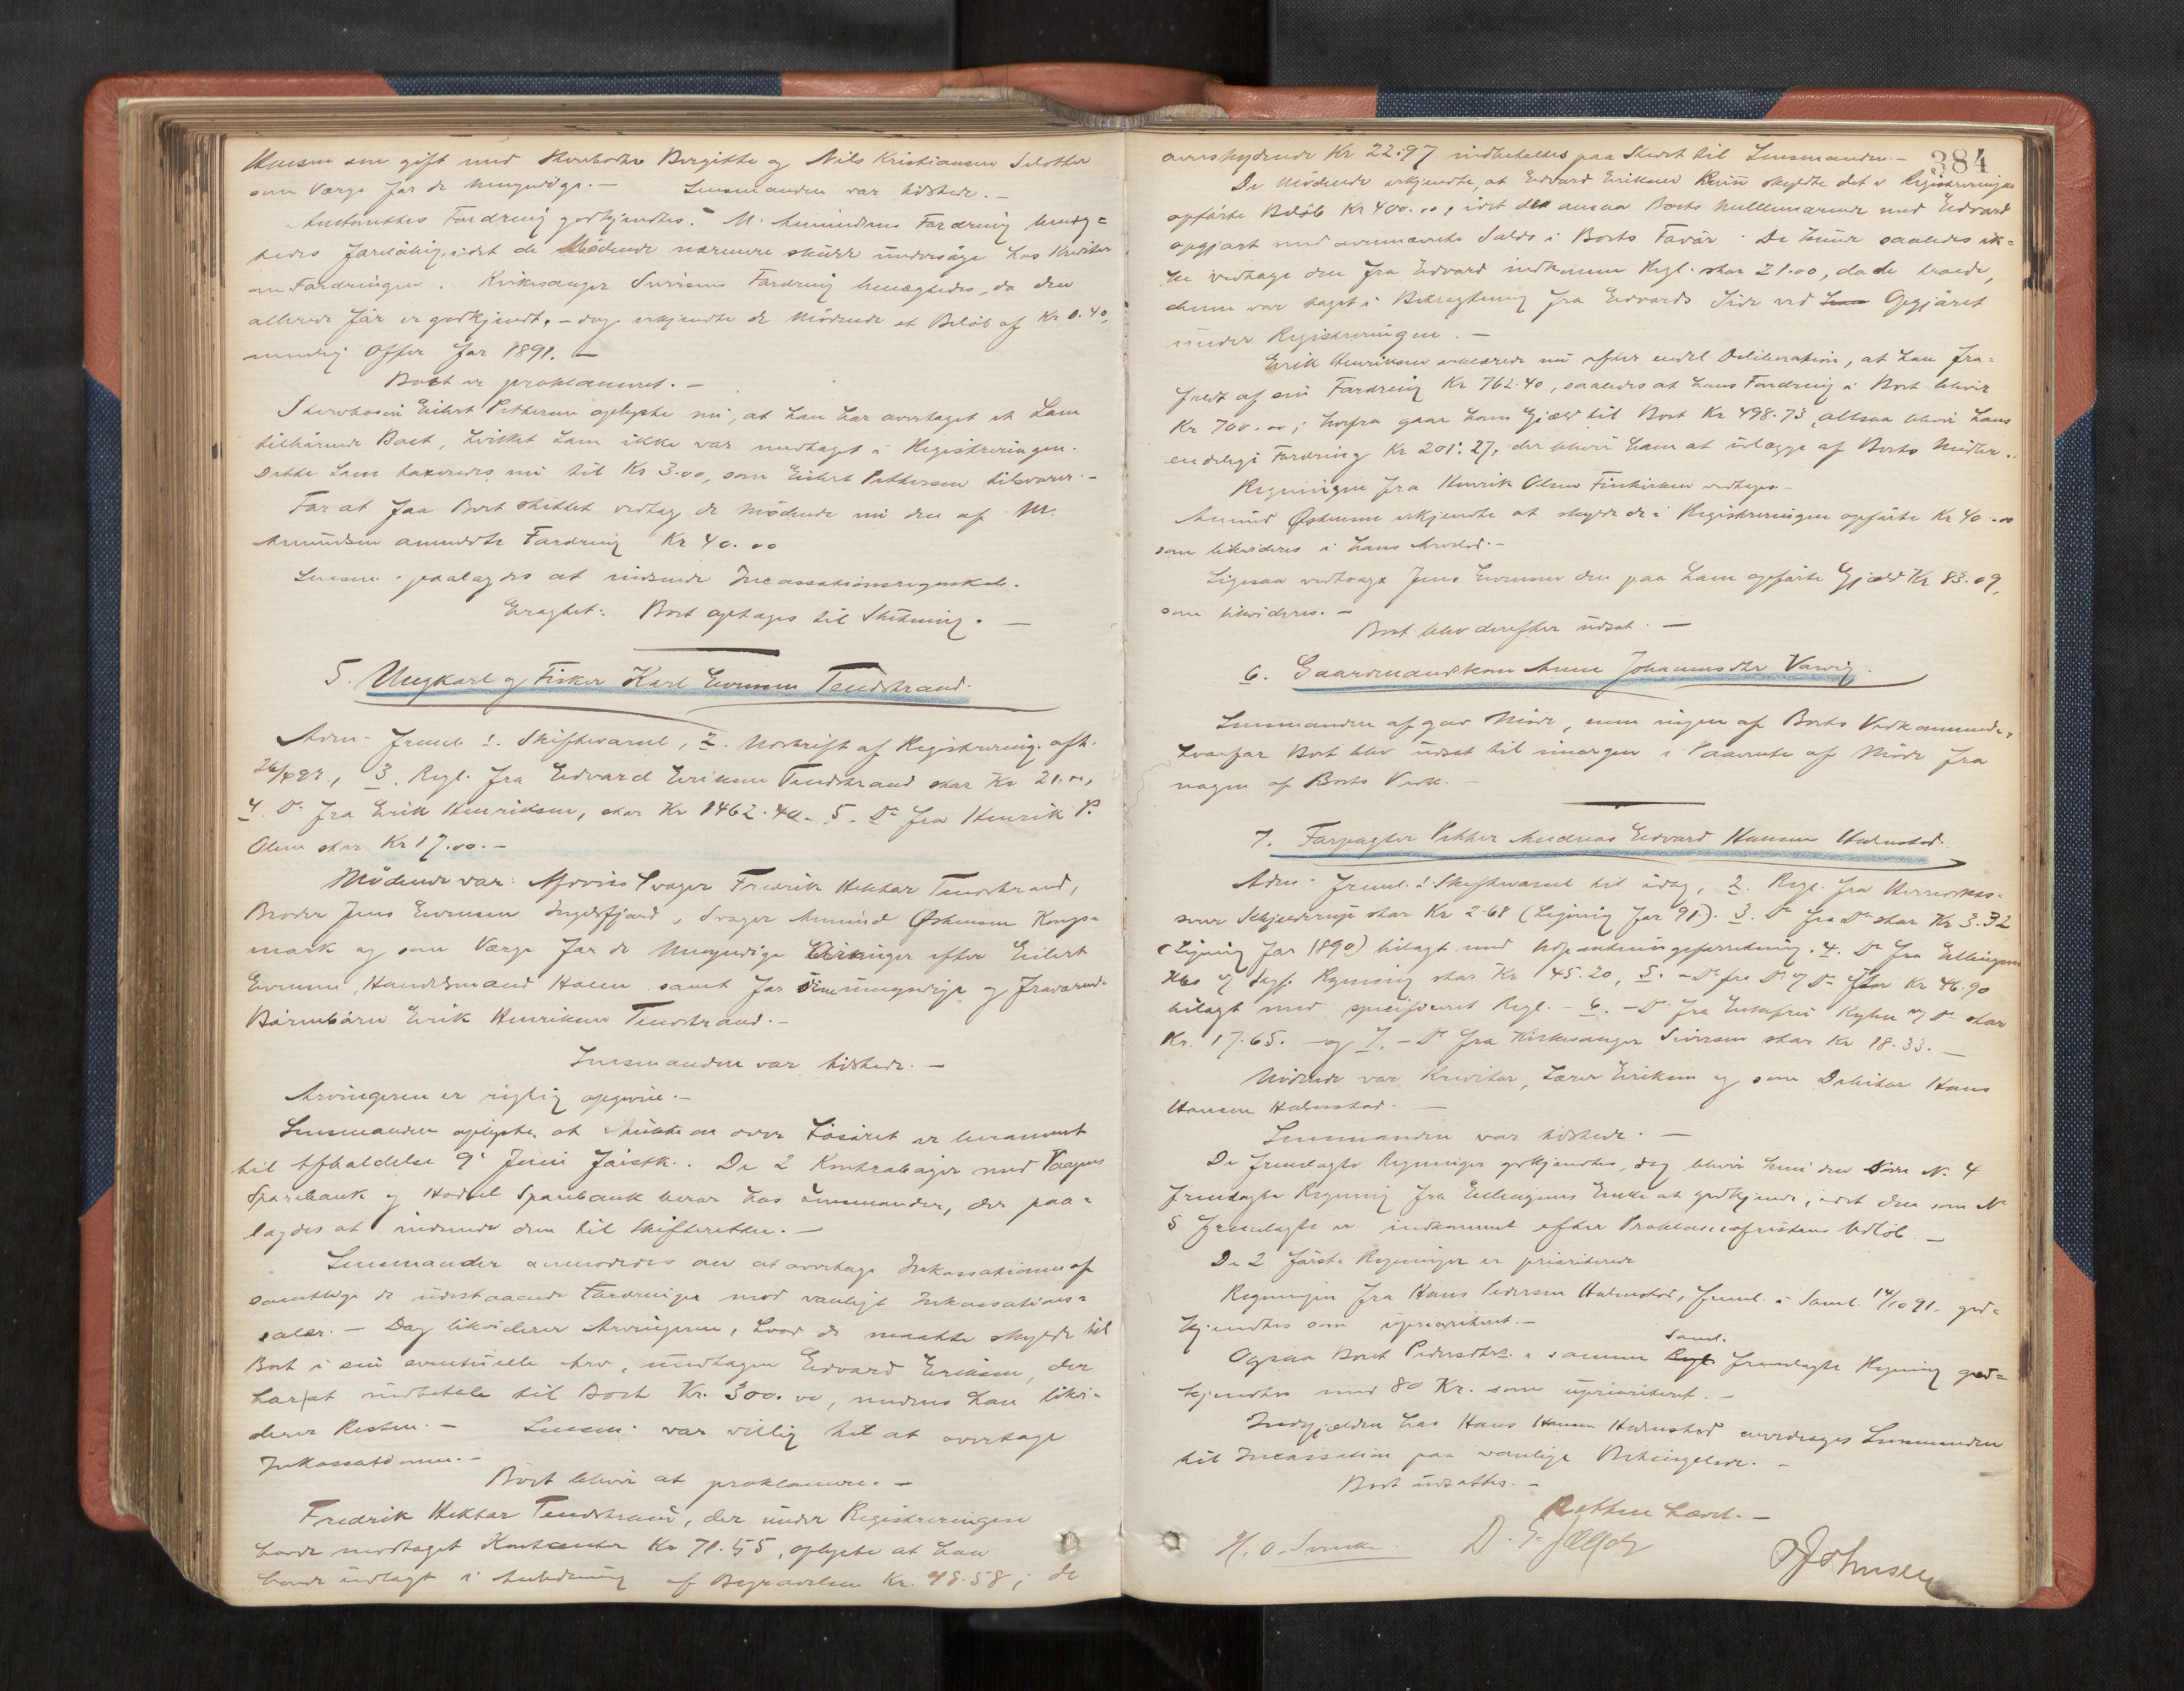 Hansen som gift med Stervbodtr Bergitte og Nils Kristiansen
som Værge for de Umyndige. — Lensmanden var tilstede. —
Fordring godkjendtes. — M. Amundsens Fordring benæg=
tedes foreløbig, idet de Mødende nærmere skulde undersøge hos Kreditor
om Fordringen. Kirkesanger Sivertsens Fordring benægtedes, da den
allerede før er godkjendt, — dog erkjendte de Mødende et Beløb af Kr 0.40,
nemlig Offer for 1891. —
Boet er proklameret. —
Eilert Pettersen oplyste nu, at han har overtaget et Lam
tilhørende Boet, hvilket Lam ikke var medtaget i Registreringen.
Dette Lam taxeredes nu til Kr 3.00, som Eilert Pettersen tilsvarer. —
For at faa Boet sluttet vedtog de Mødende nu den af M.
Amundsen anmeldte Fordring Kr 40.00
Lensm. paalagdes at indsende Incassationsregnskab.
Eragtet: Boet optages til Slutning. —
5. Ungkarl og Fisker Karl Evensen Tendstrand.
Adm. freml. 1. Skiftevarsel, 2. Udskrift af Registrering afh.
26/4 92, 3. Regl. fra Edvard Eriksen Tendstrand stor Kr 21.00,
4. Do fra Erik Henriksen, stor Kr 1462.40. 5. Do fra Henrik P.
Olsen stor Kr 17.00. —
Mødende var: Afdødes Svager Fredrik Hektor Tendstrand,
Broder Jens Evensen Ingelsfjord, Svager Amund Østensen Kongs=
mark og som Værge for de Umyndige Arvinger efter Eilert
Evensen, Handelsmand Holm samt for sine umyndige og fraværende
Børnebørn Erik Henriksen Tendstrand. —
Lensmanden var tilstede. —
Arvingerne er rigtig opgivne. —
Lensmanden oplyste, at Auktion over Løsøret er berammet
til Afholdelse 9de Juni førstk. De 2 Kontrabøger med Vaagens
Sparebank og Hadsel Sparebank beror hos Lensmanden, der paa=
lagdes at indsende dem til Skifteretten. —
Lensmanden anmodedes om at overtage Inkassationen af
samtlige de udestaaende Fordringer mod vanligt Inkassations=
salær. — Dog likviderer Arvingerne, hvad de maatte skylde til
Boet i sin eventuelle Arv, undtagen Edvard Eriksen, der
har at indbetale til Boet Kr. 300.00, medens han likvi=
derer Resten. — Lensm. var villig til at overtage
Inkassationen. —
Boet bliver at proklamere. —
Fredrik Hektor Tendstrand, der under Registreringen
havde modtaget Kontanter Kr 71.55, oplyste at han
havde udlagt i Anledning af Begravelsen Kr. 48.58; de
384
overskydende Kr 22.97 indbetaltes paa Stedet til Lensmanden. —
De Mødende erkjendte, at Edvard Eriksen kun skyldte det i Registreringen
opførte Beløb Kr 400.00, idet de ansaa Boets Mellemværende med Edvard
opgjort med ovennævnte Saldo i Boets Favør. De kunde saaledes ik=
ke vedtage den fra Edvard indkomne Regl. stor 21.00, da de troede,
denne var taget i Betragtning fra Edvards Side ved Opgjøret
under Registreringen. —
Erik Henriksen erklærede nu efter endel Deliberation, at han fra=
faldt af sin Fordring Kr 762.40, saaledes at hans Fordring i Boet bliver
Kr 700.00; herfra gaar hans Gjæld til Boet Kr 498.73, altsaa bliver hans
endelige Fordring Kr 201.27, der bliver ham at udlægge af Boets Midler.
Regningen fra Henrik Olsen vedtages. —
Amund Østensen erkjendte at skylde de i Registreringen opførte Kr 40.00
som likvideres i hans Arvelod. —
Ligesaa vedtoges Jens Evensen den paa ham opførte Gjæld Kr 83.09,
som likvideres. —
Boet blev derefter udsat. —
6. Gaardmandskone Anne Johannesdtr Varvig.
Lensmanden afgav Møde, men ingen af Boets Vedkommende,
hvorfor Boet blev udsat til imorgen i Paavente af Møde fra
nogen af Boets Vedk. —
7. Forpagter Petter Andreas Edvard Hansen Halmstad.
Adm. freml. 1 Skiftevarsel til idag, 2. Regl. fra Herredskas=
serer Schjelderup stor Kr 2.68 (Ligning for 91). 3. Do fra Do stor Kr 3.32
(Ligning for 1890) bilagt med Udpantningsforretning. 4. Do fra Ellingsens
Regning stor Kr 145.20, 5. — Do fra Do og Do stor Kr 46.90
bilagt med specificeret Regl. — 6. — Do fra Enkefru og Do stor
Kr. 17.65. — og 7. — Do fra Kirkesanger Sivertsen stor Kr 18.33. —
Mødende var Kreditor, Lærer Eriksen og som Debitor Hans
Hansen Halmstad. —
Lensmanden var tilstede. —
De fremlagte Regninger godkjendtes, dog bliver kun den som N. 4
fremlagte Regning fra Ellingsens Enke at godkjende, idet den som N
5 fremlagte er indkommet efter Proklamafristens Udløb. —
De 2 første Regninger er prioriterede
Regningen fra Hans Pedersen Halmstad, freml. i Saml. 14/10 91. god=
kjendtes som uprioriteret. —
Ogsaa Pedersdtrs. i samme Saml. fremlagte Regning god=
kjendtes med 80 Kr. som uprioriteret. —
Indgjælden hos Hans Hansen Halmstad overdrages Lensmanden
til Incassation paa vanlige Betingelser. —
Boet udsattes. —
Retten hævet. —